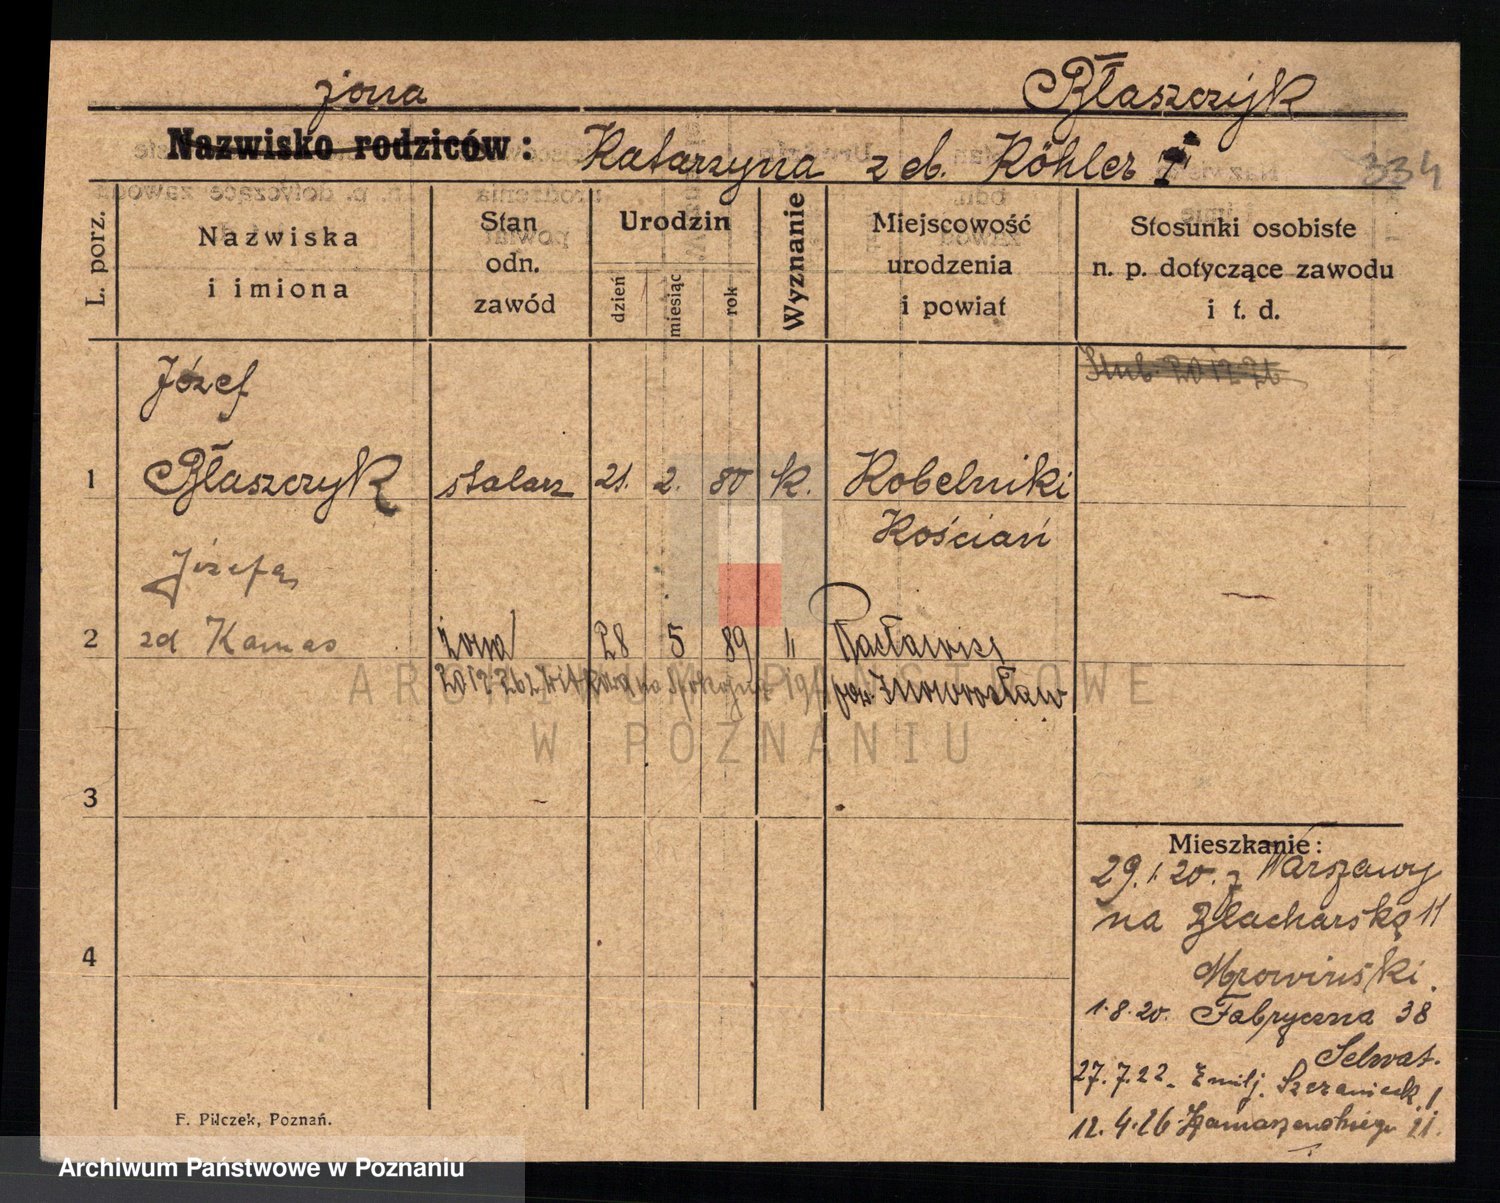 żona Błaszczyk
Nazwisko rodziców: Katarzyna z d. Köhler †
334
L. porz.
Nazwiska
i imiona
Stan
odn.
zawód
Urodzin
dzień
miesiąc
rok
Wyznanie
Miejscowość
urodzenia
i powiat
Stosunki osobiste
n. p. dotyczące zawodu
i t. d.
Józef
1 Błaszczyk stolarz 21. 2. 80 k. Kobelniki
Kościań
Józefa
2 zd Kamas żona 28 5 89 " Racławice
pow. Inowrocław
3
4
Mieszkanie:
29.1.20. z Warszawy
na 11
Mrowiński.
1.8.20. Fabryczna 38
27.7.22. Emilj. Szczanieck. 1
12.4.26. 21.
F. Pilczek, Poznań.
ARCHIWUM PAŃSTWOWE
W POZNANIU
Archiwum Państwowe w Poznaniu